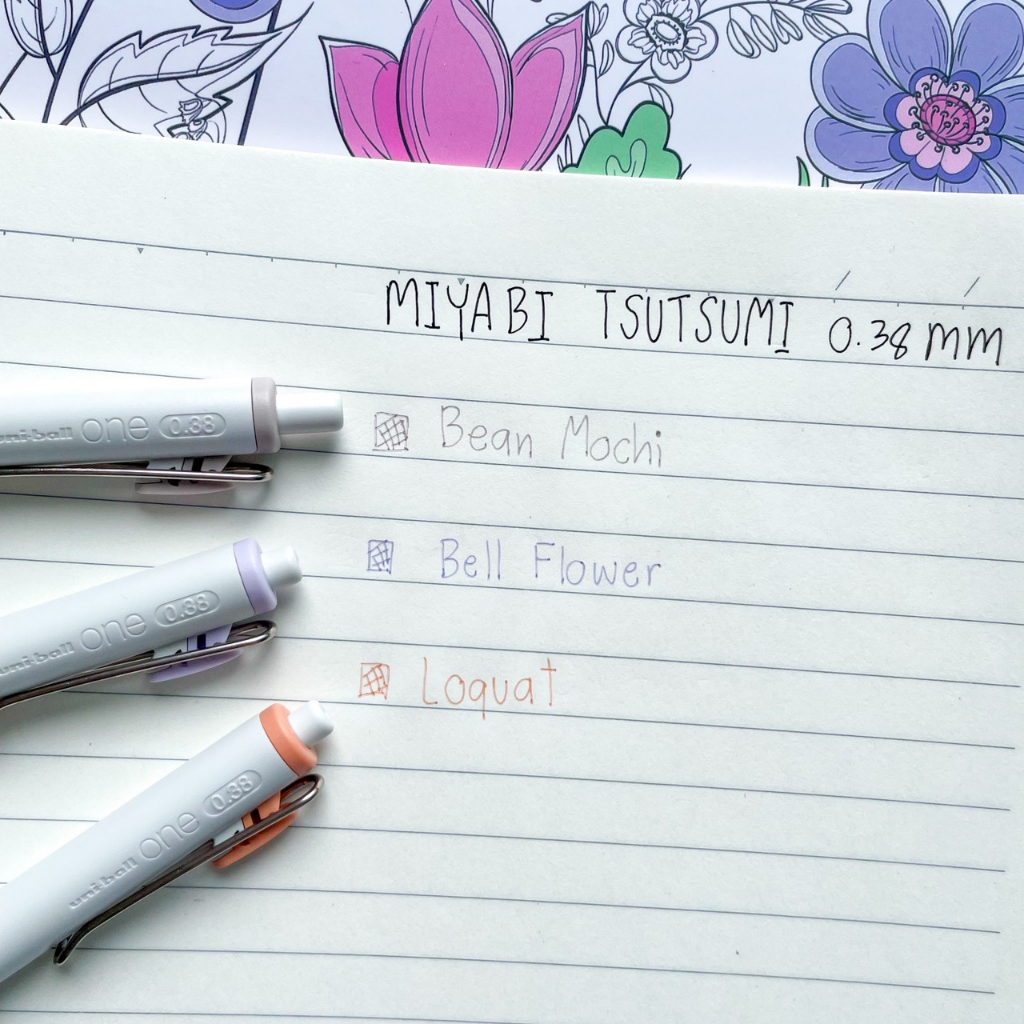 MIYABI TSUTSUMI 0.38 mm
uni-ball one 0.38
Bean Mochi
uni-ball one 0.38
Bell Flower
Loquat
uni-ball one 0.38